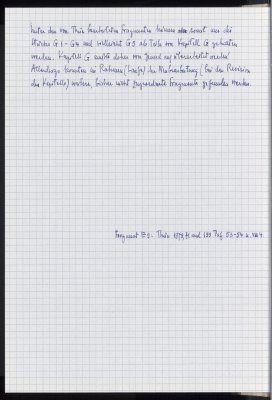 Unter den von Thür bearbeiteten Fragmenten können somit nur die
Stücke G 1 - G4 und vielleicht G 5 als Teile von Kapitell G gehalten
werden. Kapitell G muß daher von Grund auf überarbeitet werden.
Allerdings konnten im Rahmen (Laufe) der Neubearbeitung (bei der Revision
des Kapitells) weitere, bisher nicht zugeordnete Fragmente gefunden werden.
Fragment F 5 - Thür 1979, und 199 Taf. 53-54 u.